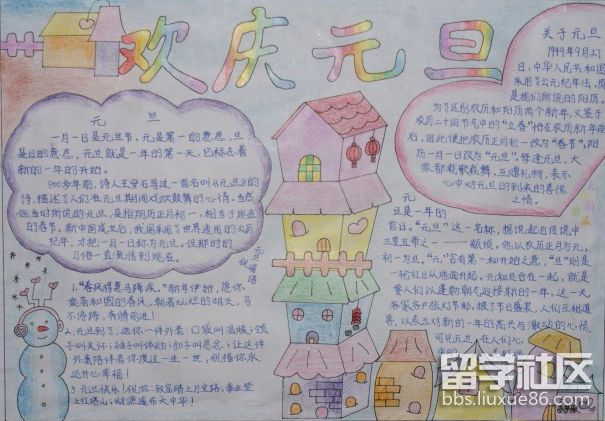 欢庆元旦
元 旦
一月一日是元旦节,元是第一的意思,旦
是日的意思,元旦就是一年的第一天,它标志着
新的一年的开始。
800多年前,诗人王安石写过一首名叫《元旦》的
诗,描述了人们在元旦期间欢欣鼓舞的心情,当然
他当时所说的元旦,是指阴历正月初一,相当于现在
的春节。新中国成立后,我国采用了世界通用的公历
纪年,才把一月一日称为元旦。但那时的
习俗一直流传到现在。
关于元旦
1949年9月27
日,中华人民共和国
采用了公元纪年法,
是我们所说的阳历,
为了区别农历和阳历两个新年,又鉴于
农历二十四节气中的“立春”恰在农历新年前
后,因此便把农历正月初一改为“春节”,阳
历一月一日改为“元旦”。每逢元旦,大
家都载歌载舞,互赠礼物,表示
心中对元旦的到来的喜悦
之情。
元旦祝福语
1.“春风得意马蹄疾。”新年伊始,愿你
乘着和煦的春风,朝着灿烂的明天,马
不停蹄,奔腾前进!
2.元旦到了,送你一件外套:口袋叫温暖;领
子叫关怀;袖子叫体贴;扣子叫思念;让这件
外套陪伴着你度过一生一世,祝福你永
远开心幸福!
3.元旦快乐!祝你:致富踏上万宝路;事业登
上红塔山;财源遍布大中华!
元
旦是一年的
首日。“元旦”这一名称,据说起自传说中
三皇五帝之一——颛顼。他以农历正月为元,
初一为旦。“元”含有第一和开始之意,“旦”则是
一轮红日从地面升起。元和旦合在一起,就是
要人们以蓬勃朝气迎接新的一年。这一天
家家户户张灯节彩,披了节日盛装,人们互相道
喜,以表示对新的一年的高兴与激动的心情。
可见元旦,在人们心
中的
留学社区
bbs.liuxue86.com